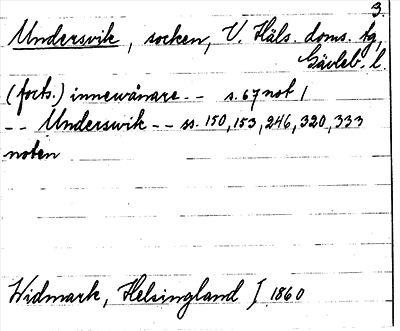 3.
Undersvik, socken, V. Häls. doms. hg,
Gävleb. l.
(forts.) innewånare -- s. 67 not 1
-- Underswik -- ss. 150, 153, 246, 320, 333
noten
Widmark, Helsingland I 1860